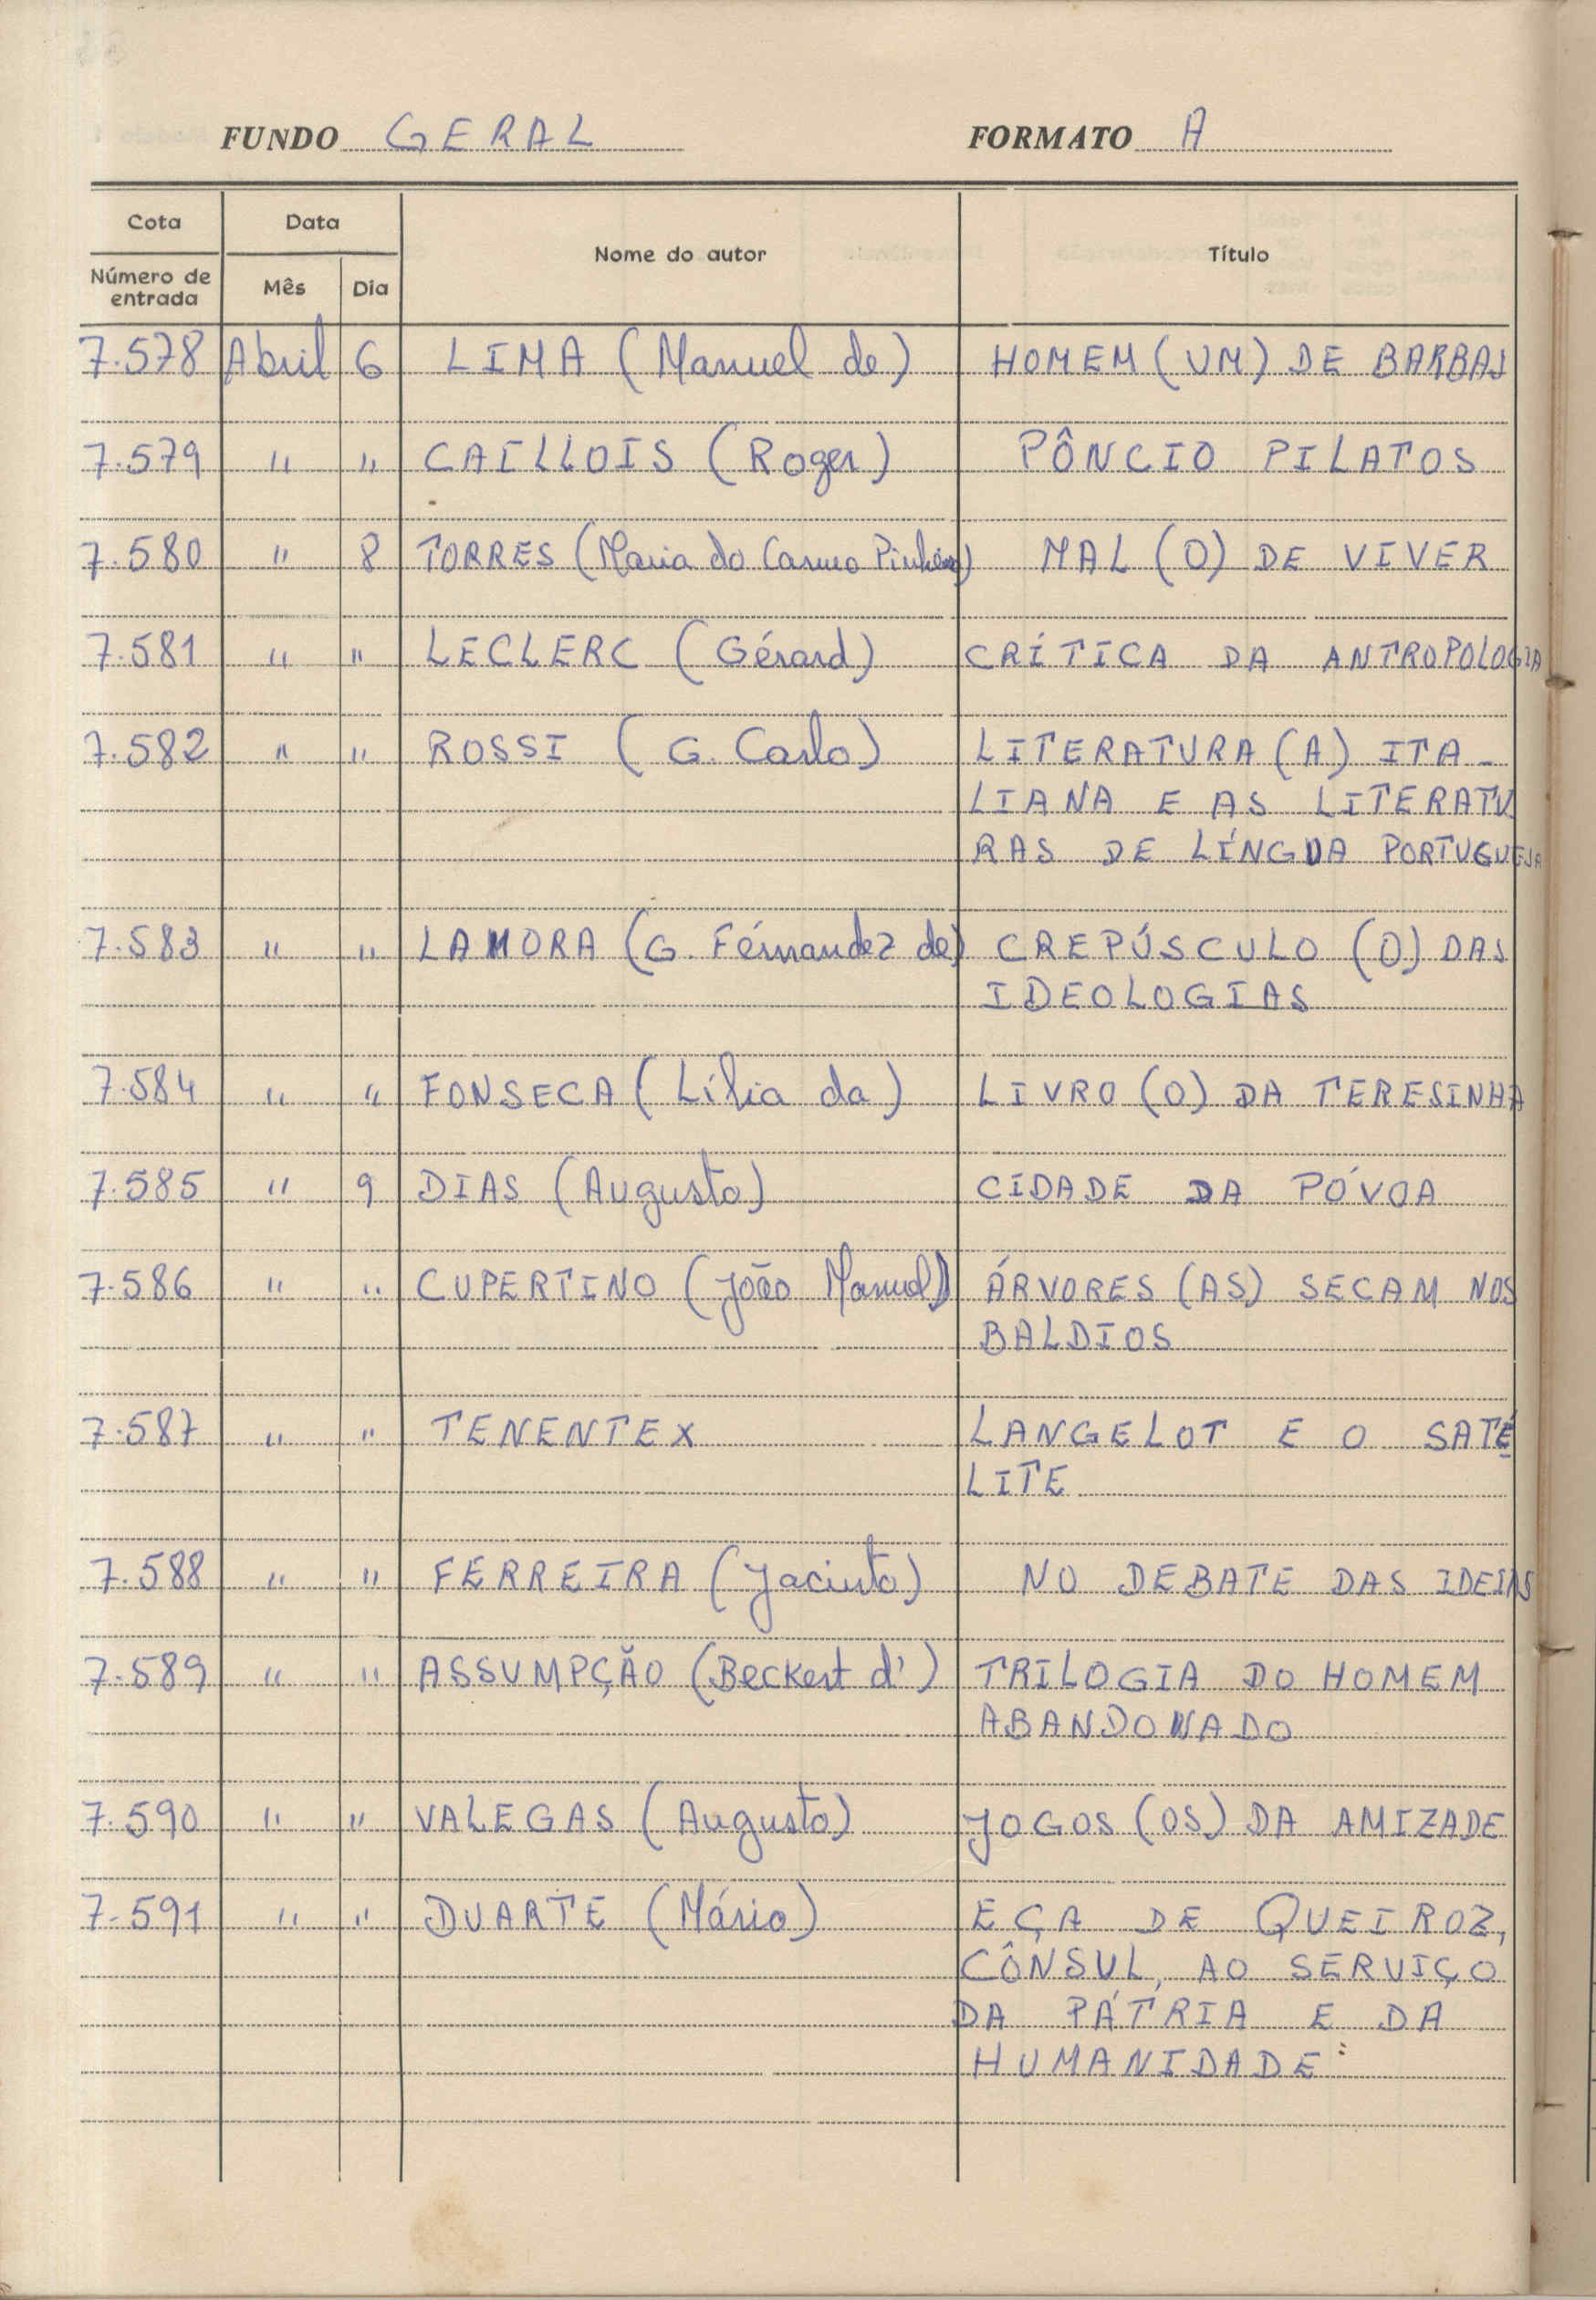 FUNDO GERAL FORMATO A
Cota Data Nome do autor Título
Número de entrada Mês Dia
7.578 Abril 6 LIMA (Manuel de) HOMEM (UM) DE BARBAS
7.579 " " CAILLOIS (Roger) PÔNCIO PILATOS
7.580 " 8 TORRES (Maria do Carmo Pinheiro) MAL (O) DE VIVER
7.581 " " LECLERC (Gérard) CRÍTICA DA ANTROPOLOGIA
7.582 " " ROSSI (G. Carlo) LITERATURA (A) ITA-
LIANA E AS LITERATU
RAS DE LÍNGUA PORTUGUESA
7.583 " " LAMORA (G. Férnandez de) CREPÚSCULO (O) DAS
IDEOLOGIAS
7.584 " " FONSECA (Lília da) LIVRO (O) DA TERESINHA
7.585 " 9 DIAS (Augusto) CIDADE DA PÓVOA
7.586 " " CUPERTINO (João Manuel) ÁRVORES (AS) SECAM NOS
BALDIOS
7.587 " " TENENTEX LANGELOT E O SATÉ
LITE
7.588 " " FERREIRA (Jacinto) NO DEBATE DAS IDEIAS
7.589 " " ASSUMPÇÃO (Beckert d') TRILOGIA DO HOMEM
ABANDONADO
7.590 " " VALEGAS (Augusto) JOGOS (OS) DA AMIZADE
7.591 " " DUARTE (Mário) EÇA DE QUEIROZ,
CÔNSUL, AO SERVIÇO
DA PÁTRIA E DA
HUMANIDADE